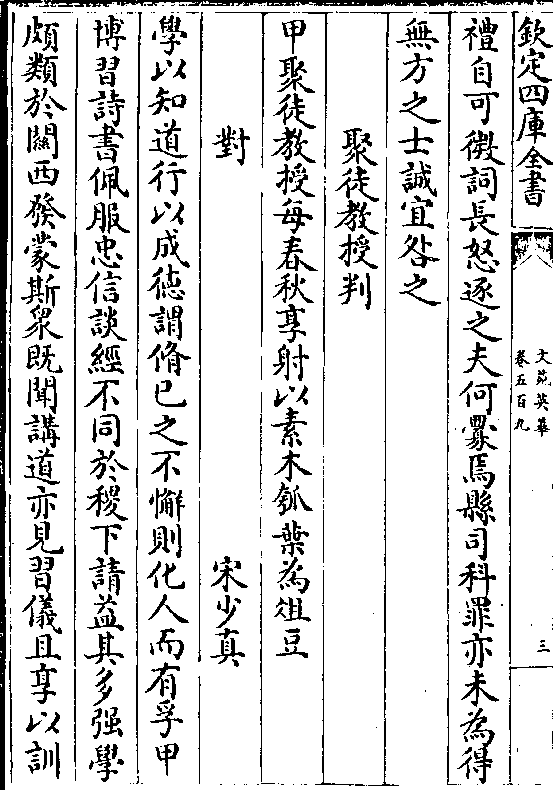 欽定四庫全書
文苑英華
卷五百九
三
禮自可徴詞長怒逐之夫何爨焉縣司科罪亦未為得
無方之士誠宜咎之
聚徒教授判
甲聚徒教授每春秋享射以素木瓠葉為俎豆
對
宋少真
學以知道行以成徳謂脩已之不懈則化人而有孚甲
博習詩書佩服忠信談經不同於稷下請益其多强學
頗類於關西發蒙斯衆既聞講道亦見習儀且享以訓